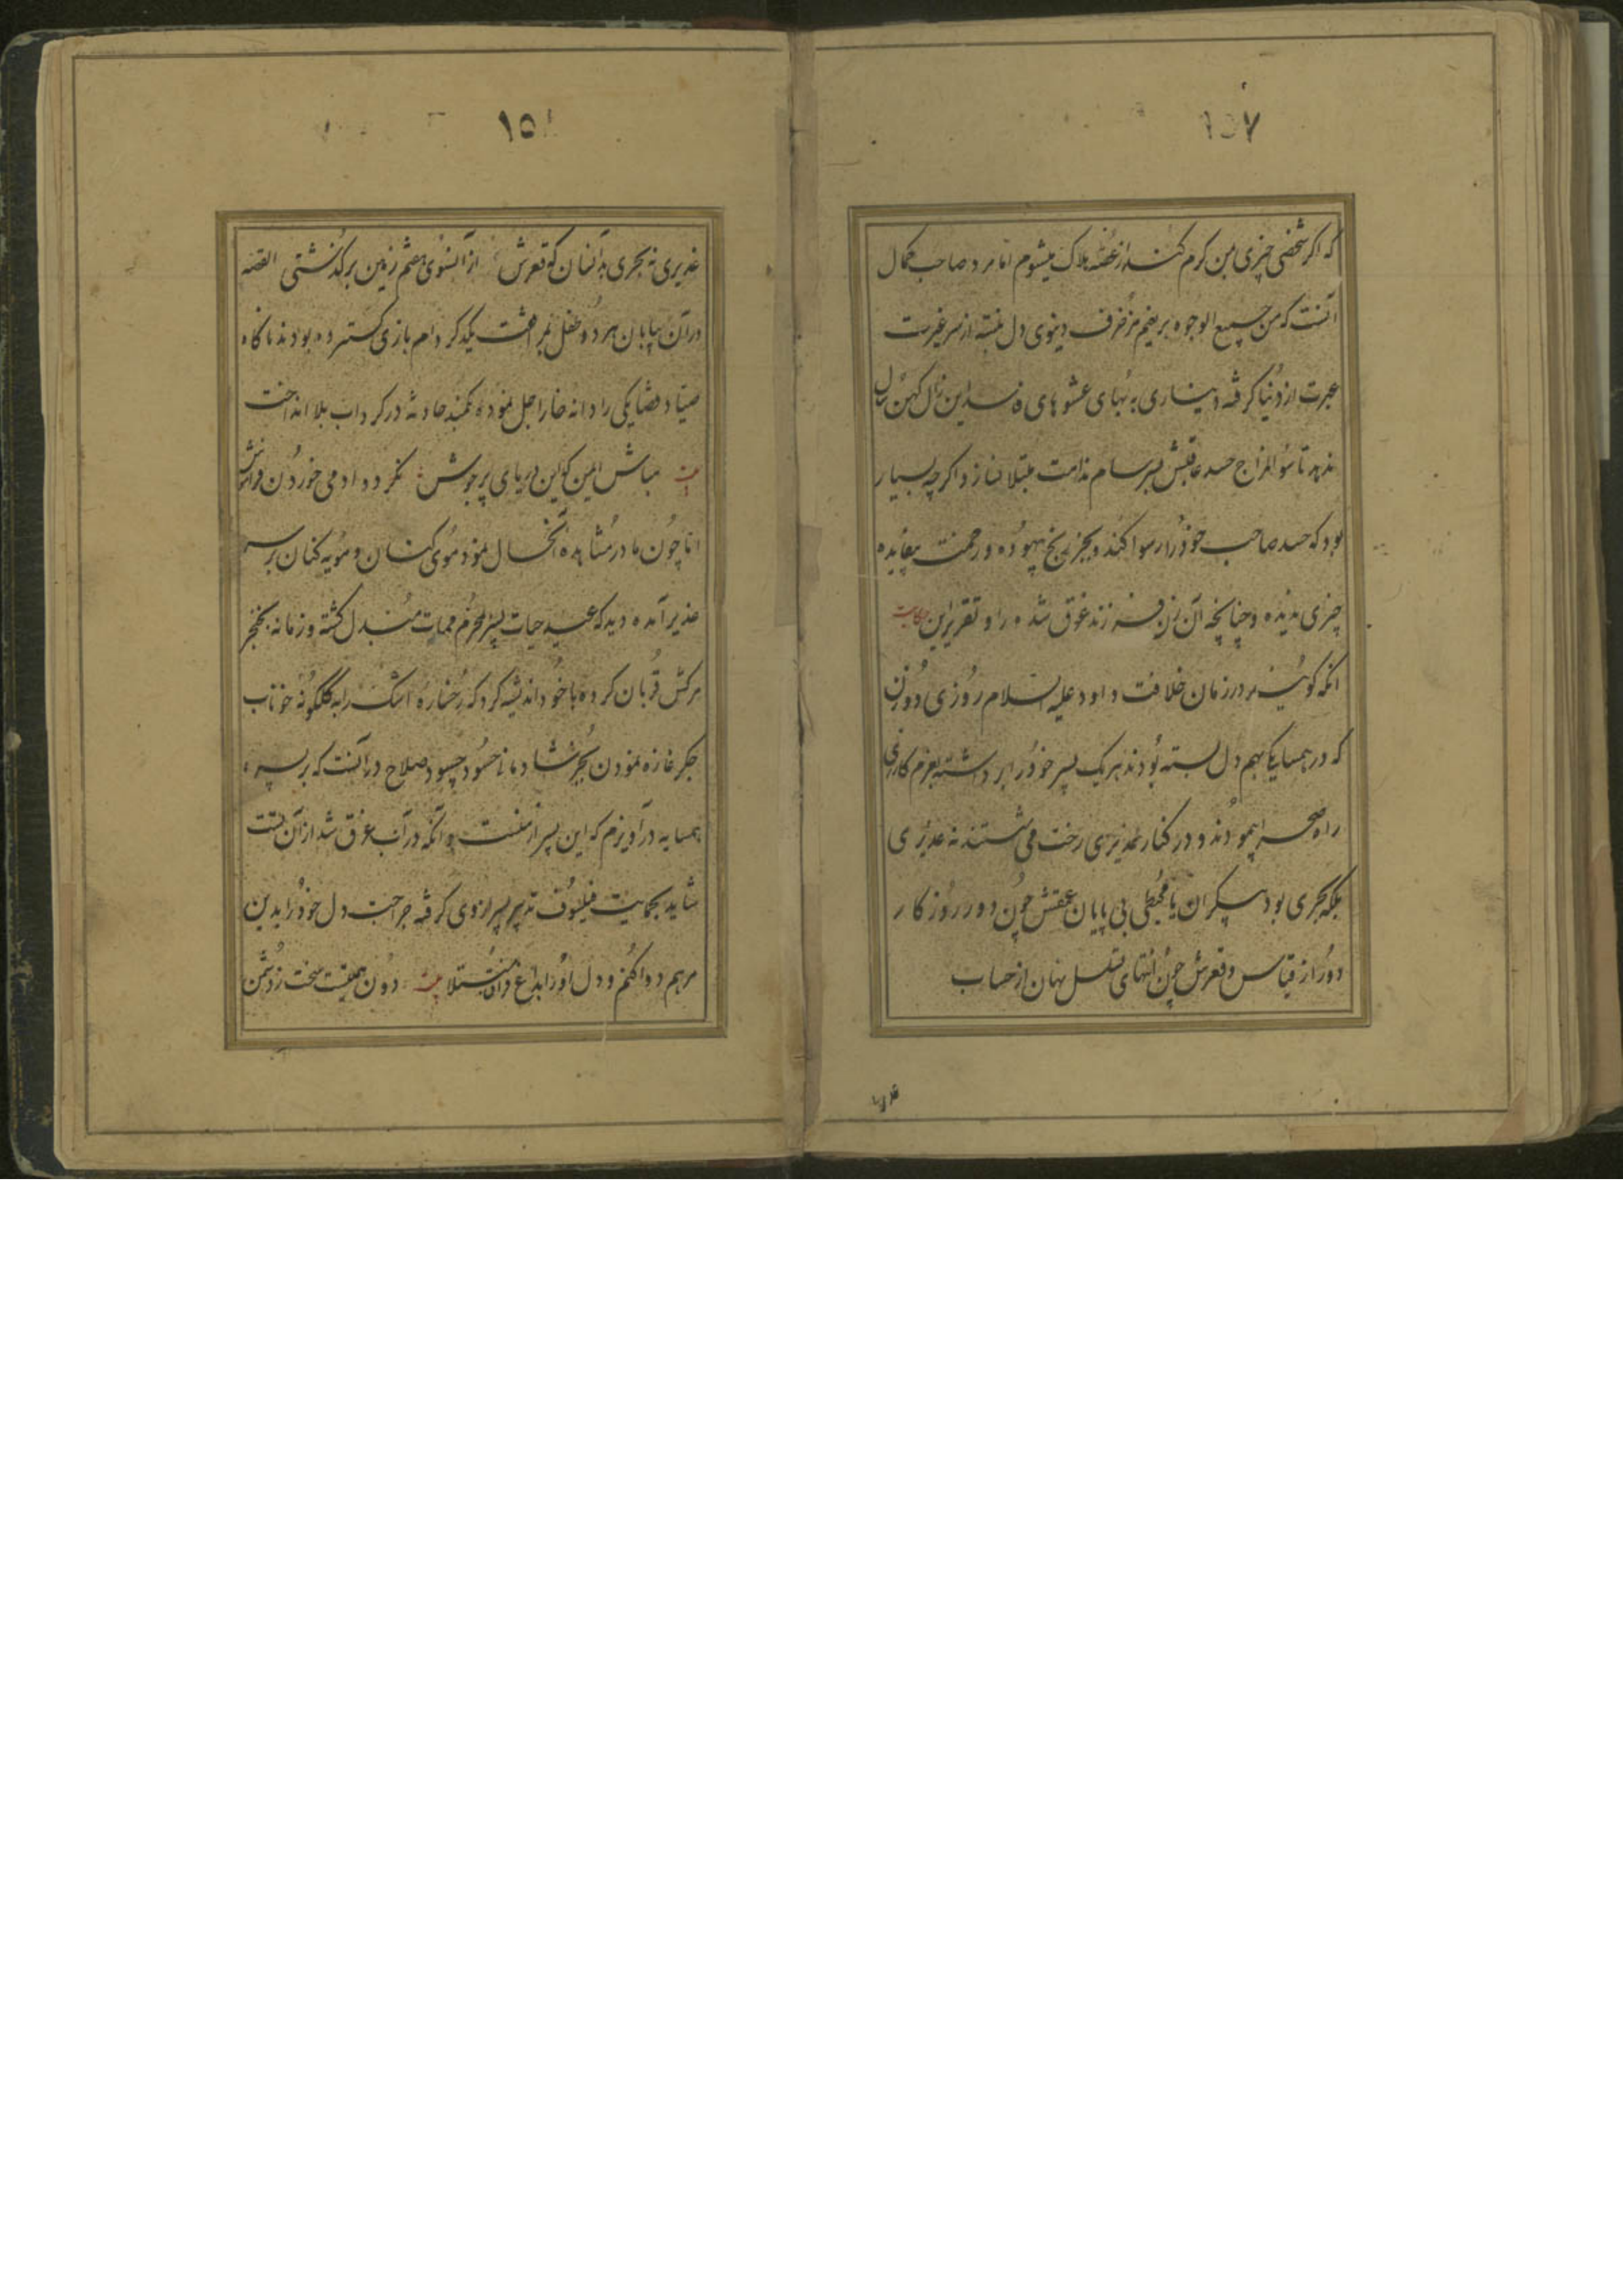 ١٥٧
که اکر شخصی چیزی بمن کرم کند از غصه هلاک میشوم اما مرد صاحب کمال
آنست که من جمیع الوجوه بر مزخرف دنیوی دل نبسته از سر غیرت
عبرت از دنیا کرفته دیناری به بهای عشوهای این زال کهن سال
ندهد تا سؤ المزاج حسد عاقبتش بسرسام ندامت مبتلا نسازد اکرچه بسیار
بود که حسد صاحب خود را رسوا کند و بجز رنج بیهوده و زحمت بیفایده
چیزی ندیده و چنانچه آن زن فرزند غرق شده را و تقریر این حکایت
انکه کویند در زمان خلافت داود علیه السلام روزی دو زن
که در همسایکی بهم دل بسته بودند هر یک پسر خود را برداشته بعزم کاری
راه صحرا پیمودند و در کنار غدیری رخت می شستند نه غدیری
بلکه بحری بود بیکران یا محیطی بی پایان عمقش چون دور روزکار
دور از قیاس و قعرش چون انتهای تسلسل نهان از حساب
غدیری
١٥
غدیری نه بحری بدآنسان که قعرش از آنسوی هفتم زمین برکذشتی القصه
در آن بیابان هر دو طفل بمرافقت یکدکر دام بازی کسترده بودند ناکاه
صیاد قضا یکی را دانه خار اجل نموده بکمند حادثه در کرداب بلا انداخت
بیت مباش ایمن که این دریای پرجوش نکرد دادمی خوردن فراموش
اما چون مادر مشاهده آنحال نمود موی کنان و مویه کنان بر سر
غدیر آمده دید که عید حیات پسر بمحرم ممات مبدل کشته و زمانه بخنجر
مرکش قربان کرده با خود اندیشه کرد که رخساره اشک را به کلکونه خوناب
جکر غازه نمودن بجز شادمانی حسود چه سود صلاح در آنست که بر پسر
همسایه درآویزم که این پسر از منست و آنکه در آب غرق شد از آن تست
شاید بحمایت فیلسوف تدبیر پسر از وی کرفته جراحت دل خود را بدین
مرهم دوا کنم و دل او را بداغ فراق مبتلا بیت دون همتیست سخت ز دشمن